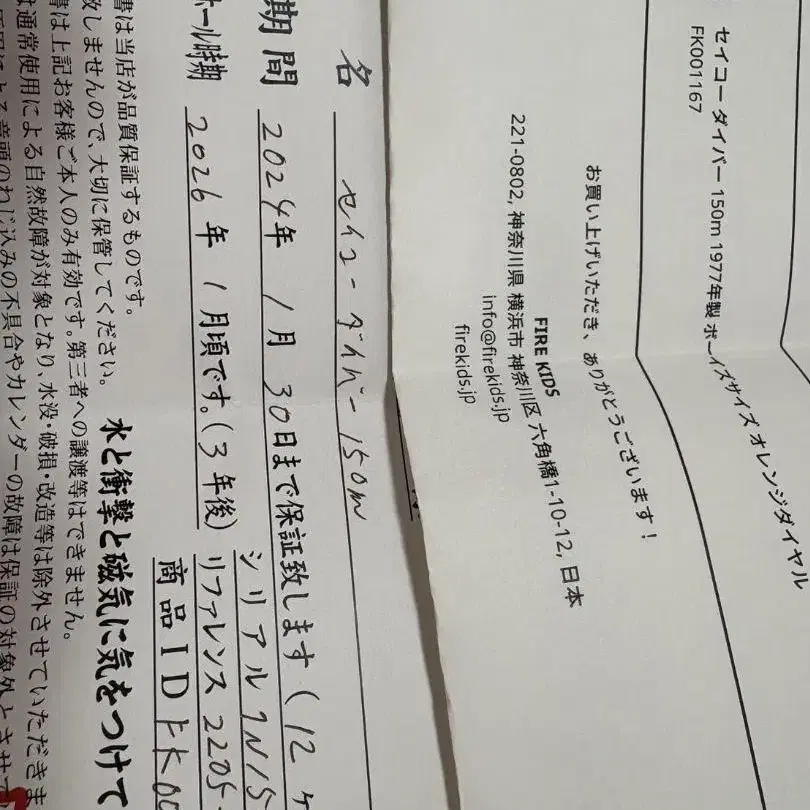 セイコー ダイバー 150m 1977年製 ボーイズサイズ オレンジダイヤル
FK001167
お買い上げいただき、ありがとうございます！
FIRE KIDS
221-0802, 神奈川県 横浜市 神奈川区 六角橋1-10-12, 日本
info@firekids.jp
firekids.jp
名 セイコーダイバー150m
期間 2024年 1月 30日まで保証致します（12ヶ
シリアル
ホール時期 2026年 1月頃です。（3年後）
リファレンス 2205-
商品ID FK00
水と衝撃と磁気に気をつけて
書は当店が品質保証するものです。
致しませんので、大切に保管してください。
書は上記お客様ご本人のみ有効です。第三者への譲渡等はできません。
は通常使用による自然故障が対象となり、水没・破損・改造等は除外させていただきま
竜頭のねじ込みの不具合やカレンダーの故障は保証の対象外とさせて